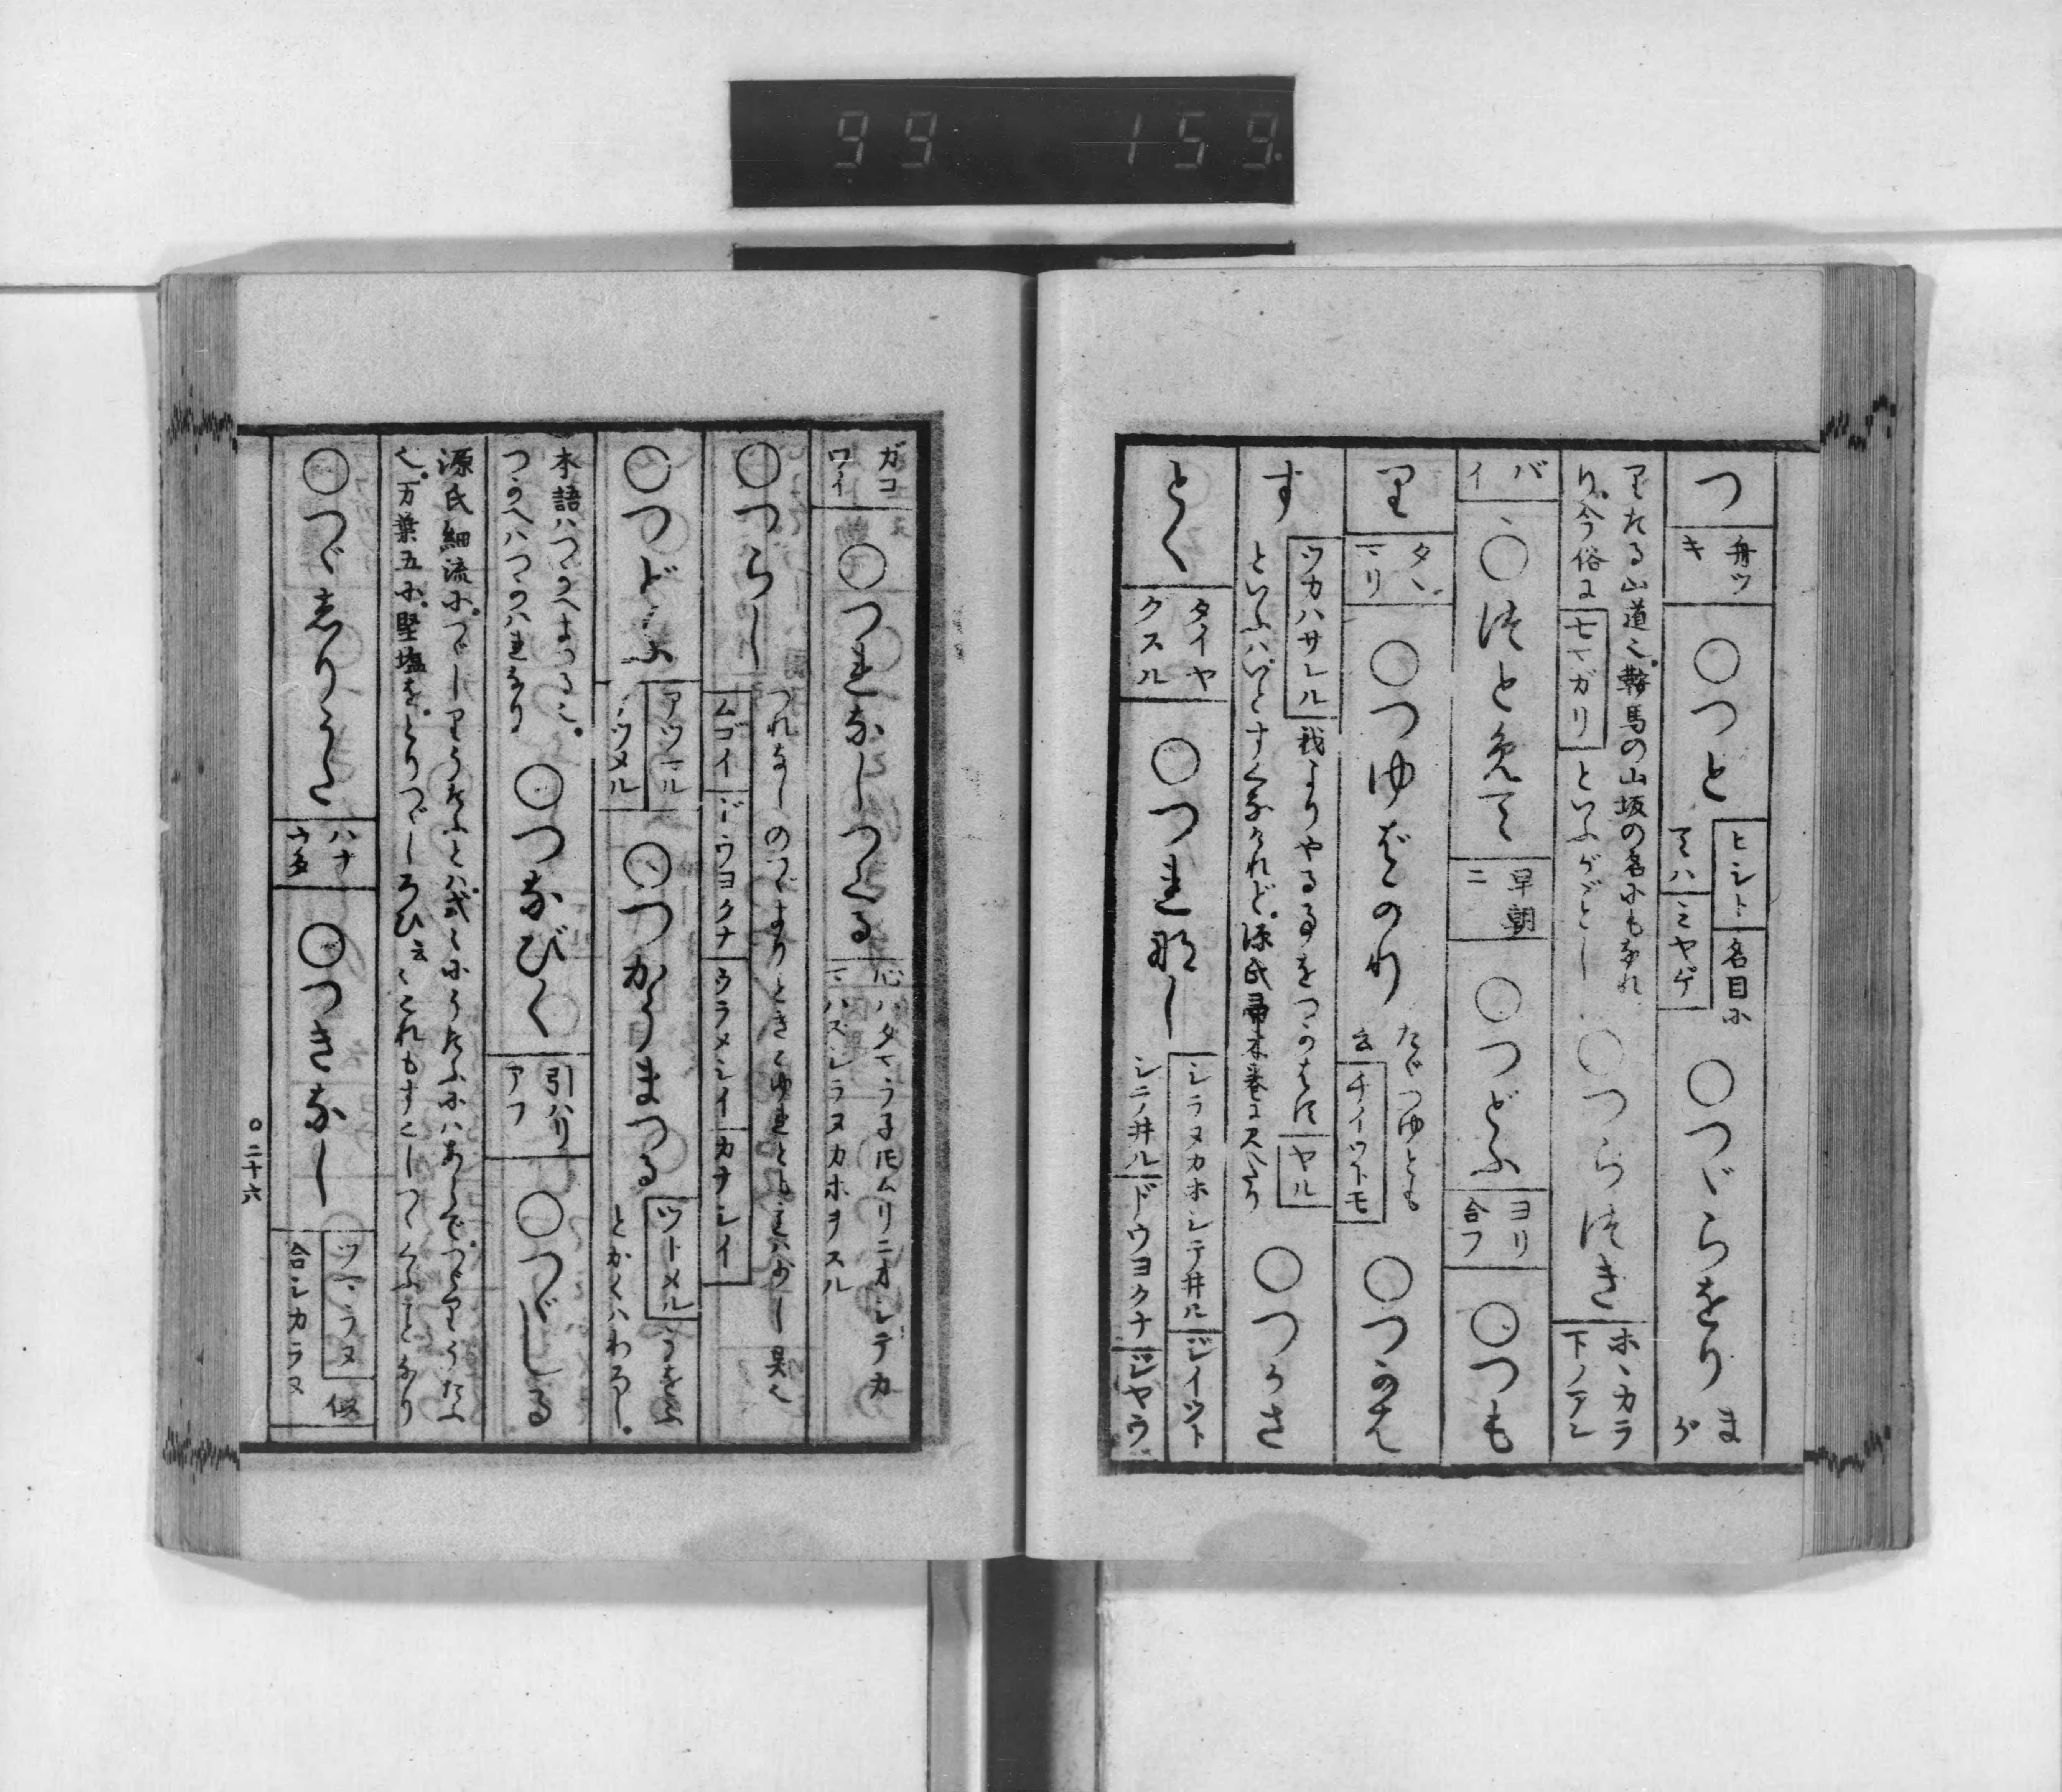 99 159
つ 舟ツキ ○つと ヒシト 名目に テハ ミヤゲ ○つゞらをり まが
りたる山道也。鞍馬の山坂の名にもなれ
り。今俗に 七マガリ といふがごとし ○つらつき ホヽカラ下ノアシ
バイ ○つとめて 早朝ニ ○つどふ ヨリ合フ ○つも
り タヽマリ ○つゆばかり たゞつゆとも云 チイツトモ ○つかえ
す ツカハサレル 我よりやるをつかはす ヤル
といふハいとすくなけれど。源氏帚木巻に見えたり ○つかさ
とく タイヤクスル ○つれなし シラヌカホシテ井ル ジイツト
シテ井ル ドウヨクナ ジヤウ
ガコワイ ○つれなしつくる 心ハタマラネ𪜈ムリニオシテカ
マハズシラヌカホヲスル
○つらし つれなしのつゞまりときこゆれとも意ハ少し異也
ムゴイ ドウヨクナ ウラメシイ カナシイ
○つどふ アツマル アツメル ○つかうまつる ツトメル つをふ
とかくハわろし。
本語ハつかへまつる也。
つかへハつかハれなり ○つなびく 引ハリアフ ○つゞしる
源氏細流に。つゞしりうたふとハ。式々にうたふにハあらで。つゞりうたふ
也。万葉五に。堅塩を。とりつゞしろひ云々これもすこしつゝくふことなり
○つゞしりうた ハナウタ ○つきなし ツマラヌ 似合シカラヌ
○二十六